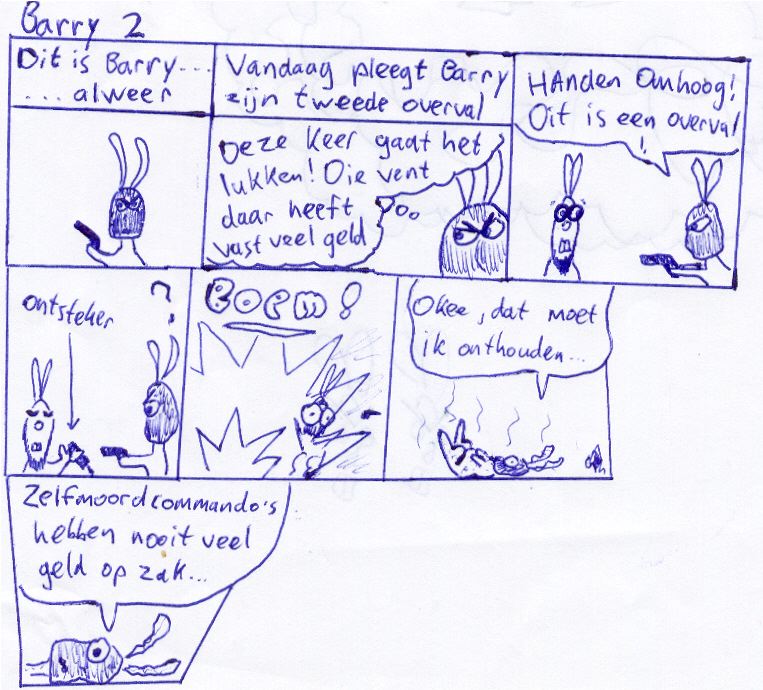 Barry 2
Dit is Barry...
... alweer
Vandaag pleegt Barry
zijn tweede overval
Deze keer gaat het
lukken! Die vent
daar heeft
vast veel geld
HAnden Omhoog!
Dit is een overval
!
ontsteker
?
BOEM!
Okee, dat moet
ik onthouden...
Zelfmoordcommando's
hebben nooit veel
geld op zak...